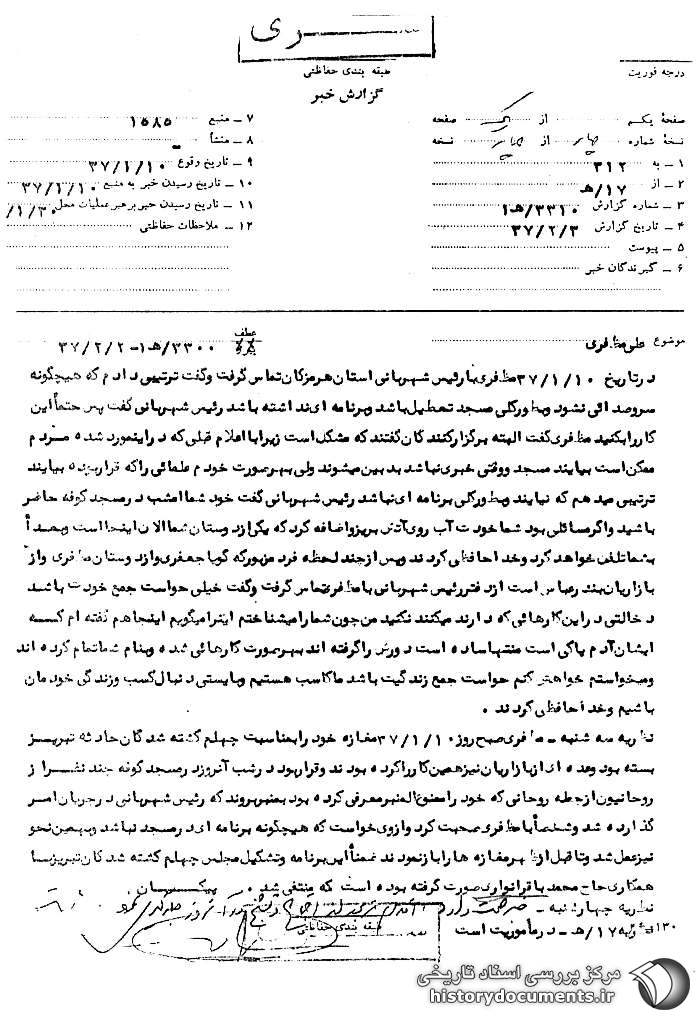 سری
طبقه بندی حفاظتی
گزارش خبر
درجه فوریت
صفحهٔ یکم از یک صفحه
نسخهٔ شماره چهار از چهار نسخه
۱ ـ به ۳۱۲
۲ ـ از ۱۷/هـ
۳ ـ شماره گزارش ۳۳۱۰/هـ۱
۴ ـ تاریخ گزارش ۳۷/۲/۳
۵ ـ پیوست
۶ ـ گیرندگان خبر
۷ ـ منبع ۱۵۸۵
۸ ـ منشأ ـ
۹ ـ تاریخ وقوع ۳۷/۱/۱۰
۱۰ ـ تاریخ رسیدن خبر به منبع ۳۷/۱/۱۰
۱۱ ـ تاریخ رسیدن خبر برهبر عملیات محل /۱/۳۰
۱۲ ـ ملاحظات حفاظتی
موضوع علی مظفری
عطف
۳۳۰۰/هـ۱ـ۳۷/۲/۲
در تاریخ ۳۷/۱/۱۰ مظفری با رئیس شهربانی استان هرمزگان تماس گرفت و گفت ترتیبی دادم که هیچگونه
سروصدائی نشود و بطورکلی مسجد تعطیل باشد و برنامه ای نداشته باشد رئیس شهربانی گفت پس حتماً این
کار را بکنید مظفری گفت البته برگزارکنندگان گفتند که مشکل است زیرا با اعلام قبلی که در اینمورد شده مردم
ممکن است بیایند مسجد و وقتی خبری نباشد بدبین میشوند ولی بهرصورت خودم علمائی را که قرار بوده بیایند
ترتیبی میدهم که نیایند و بطورکلی برنامه ای نباشد رئیس شهربانی گفت خود شما امشب در مسجد کوفه حاضر
باشید و اگر مسائلی بود شما خودت آب روی آتش بریز و اضافه کرد که یکی از دوستان شما الان اینجا است و بعداً
بشما تلفن خواهد کرد و خداحافظی کردند و پس از چند لحظه فرد مزبور که گویا جعفری و از دوستان مظفری و از
بازاریان بندرعباس است از دفتر رئیس شهربانی با مظفری تماس گرفت و گفت خیلی حواست جمع خودت باشد
دخالتی در این کارهائی که دارند میکنند نکنید من چون شما را میشناختم اینرا میگویم اینجا هم گفته ام کسه
ایشان آدم پاکی است منتها ساده است دورش را گرفته اند بهرصورت کارهائی شده و بنام شما تمام کرده اند
و میخواستم خواهش کنم حواست جمع زندگیت باشد ما کاسب هستیم و بایستی دنبال کسب و زندگی خودمان
باشیم و خداحافظی کردند .
نظریه سه شنبه ـ مظفری صبح روز ۳۷/۱/۱۰ مغازه خود را بمناسبت چهلم کشته شدگان حادثه تبریز
بسته بود و عده ای از بازاریان نیز همین کار را کرده بودند و قرار بود در شب آنروز در مسجد کوفه چند نفر از
روحانیون از جمله روحانی که خود را ممنوع المنبر معرفی کرده بود بمنبر بروند که رئیس شهربانی در جریان امر
گذارده شد و شخصاً با مظفری صحبت کرد و از وی خواست که هیچگونه برنامه ای در مسجد نباشد و بهمین نحو
نیز عمل شد و تا قبل از ظهر مغازه ها را باز نمودند ضمناً این برنامه و تشکیل مجلس چهلم کشته شدگان تبریز با
همکاری حاج محمد باقر انواری صورت گرفته بوده است که منتفی شد . پیکسان
نظریه چهارشنبه ـ صحت دارد
نظریه ۱۷/هـ ـ در مأموریت است
طبقه بندی حفاظتی
سری
مرکز بررسی اسناد تاریخی
historydocuments.ir